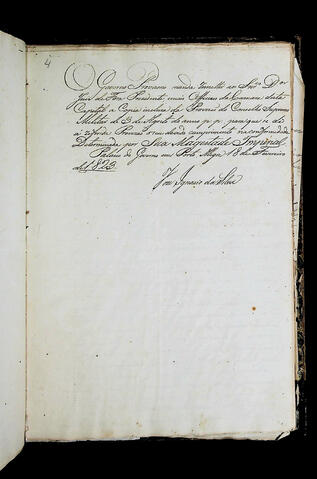 4
O Governo Provizorio manda remetter ao Snr. Dor.
Juis de Fora Prezidente, e mais Officiaes da Camara desta
Capital a Copia incluza da Provizão do Conselho Supremo
Militar de 3 de Agosto do anno p. p. para que se dê
a referida Provizão o seu devido cumprimento na conformidade
Determinada por Sua Magestade Imperial
Palacio do Governo em Porto Alegre 18 de Fevereiro
de 1823
José Ignacio da Silva